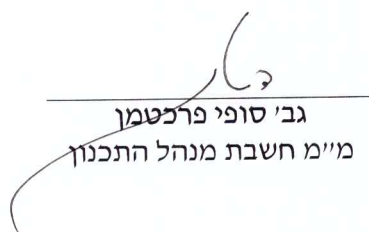 גב׳ סופי פרכטמן
מ״מ חשבת מנהל התכנון